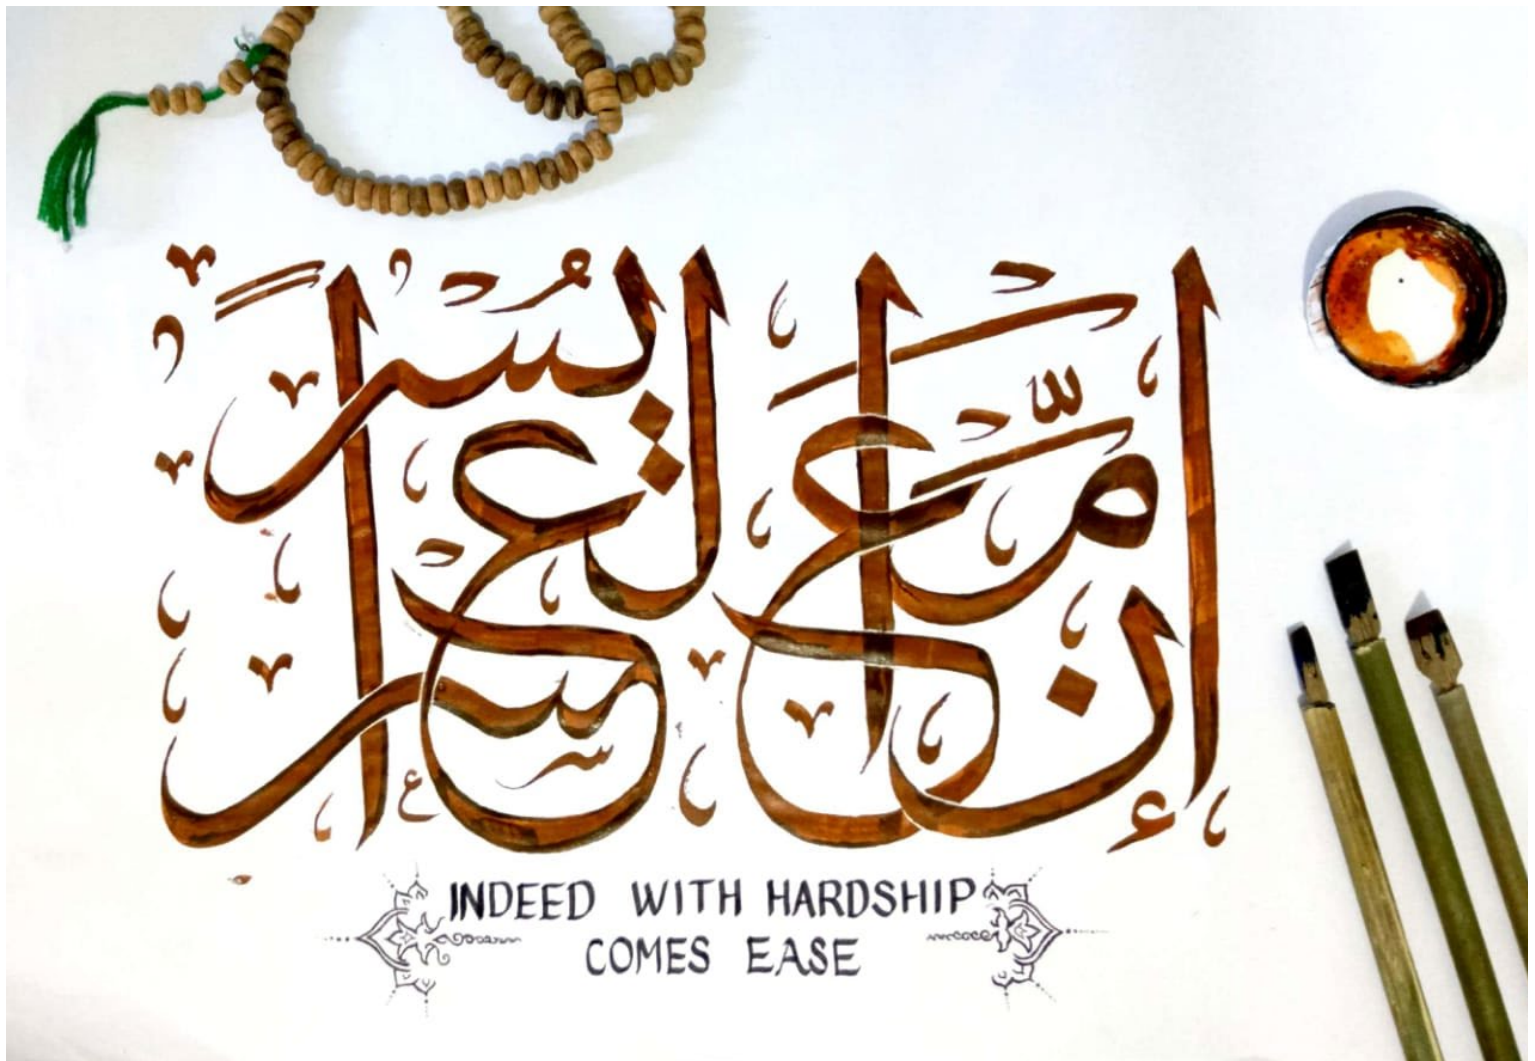 إِنَّ مَعَ الْعُسْرِ يُسْرًا
INDEED WITH HARDSHIP
COMES EASE